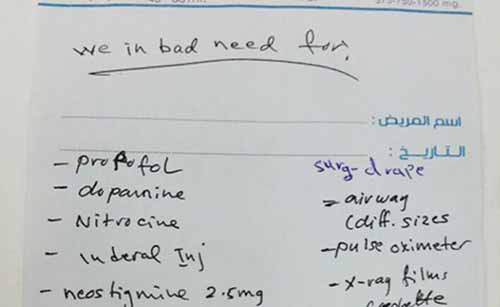 375-750-1500 mg.
we in bad need for:
اسم المريض :
التاريخ :
- propofol
- dopamine
- Nitrocine
- Inderal Inj
- neostigmine 2.5mg
surg-drape
= airway
(diff. sizes
- pulse oximeter
- x-ray films